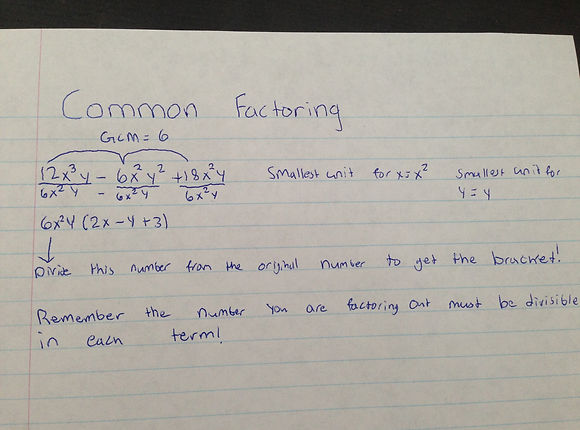 Common Factoring
GCM = 6
12x³y - 6x²y² + 18x²y Smallest unit for x = x² Smallest unit for
6x²y - 6x²y 6x²y y = y
6x²y (2x - y + 3)
Divide this number from the original number to get the bracket!
Remember the number you are factoring out must be divisible
in each term!